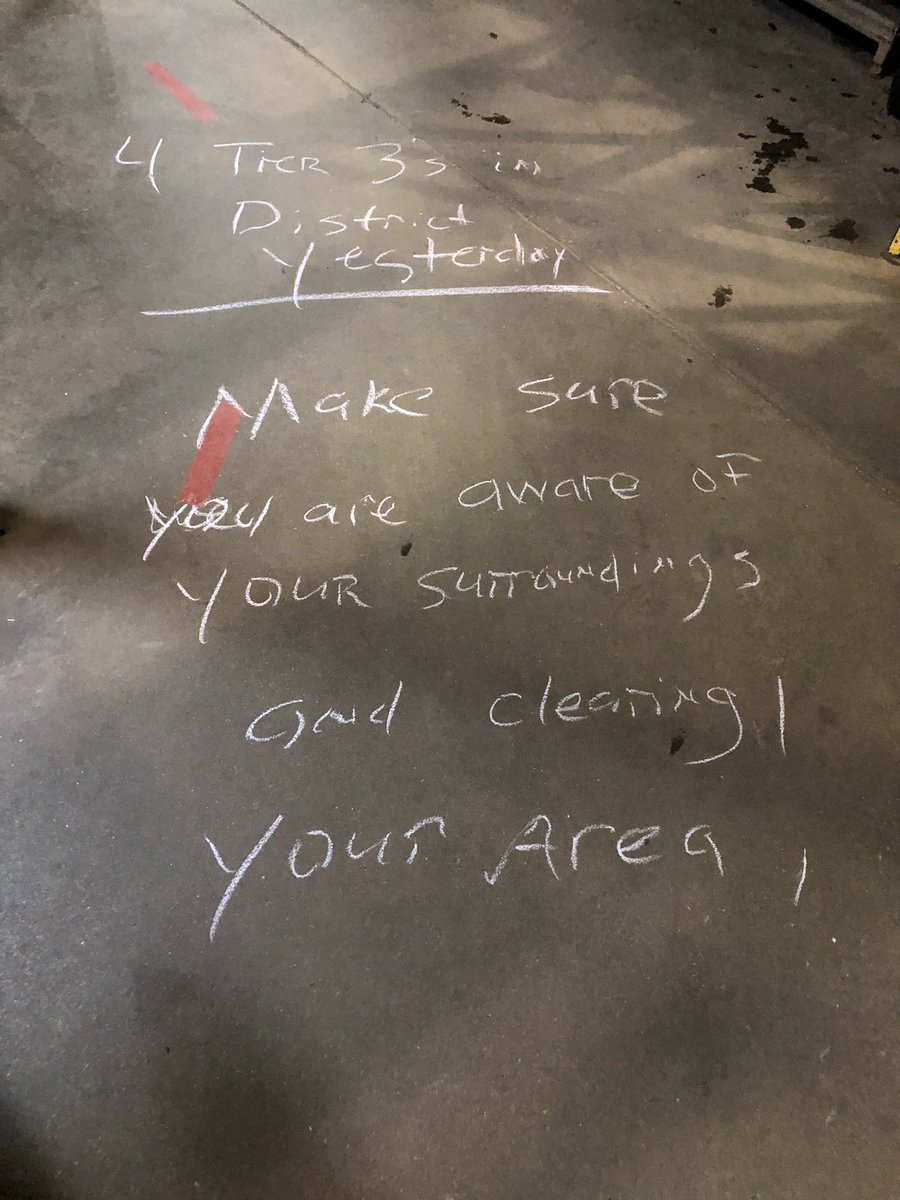 4 Tier 3's in
District
Yesterday
Make sure
you are aware of
Your surroundings
and clearing
Your Area,